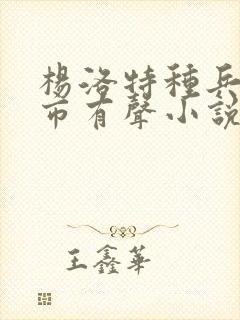 楊洛特種兵
市有聲小說
王鑫華